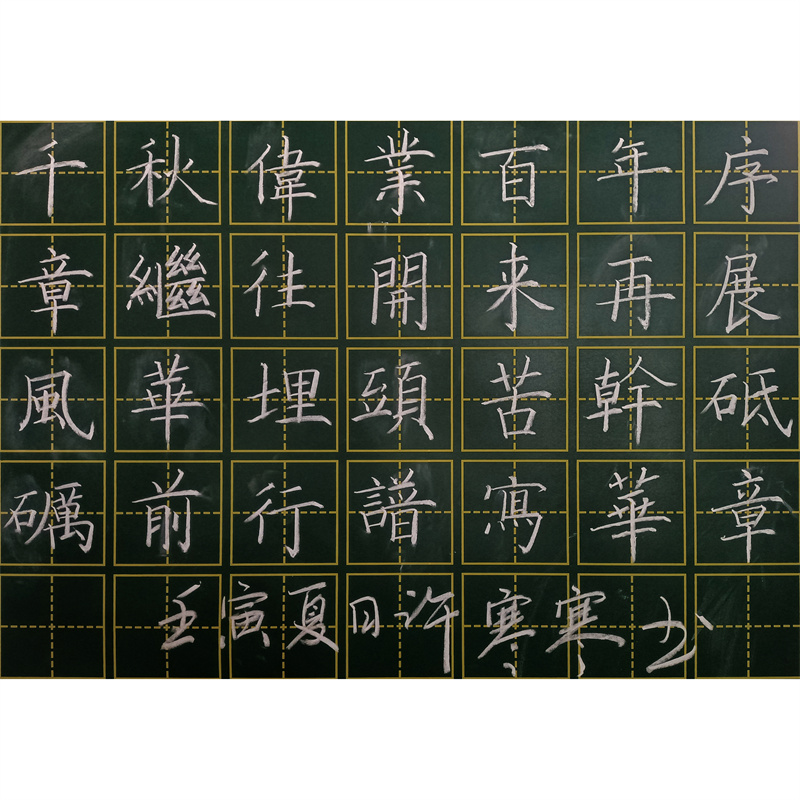 千秋偉業百年序
章繼往開来再展
風華埋頭苦幹砥
礪前行譜寫華章
壬寅夏日许寒寒书